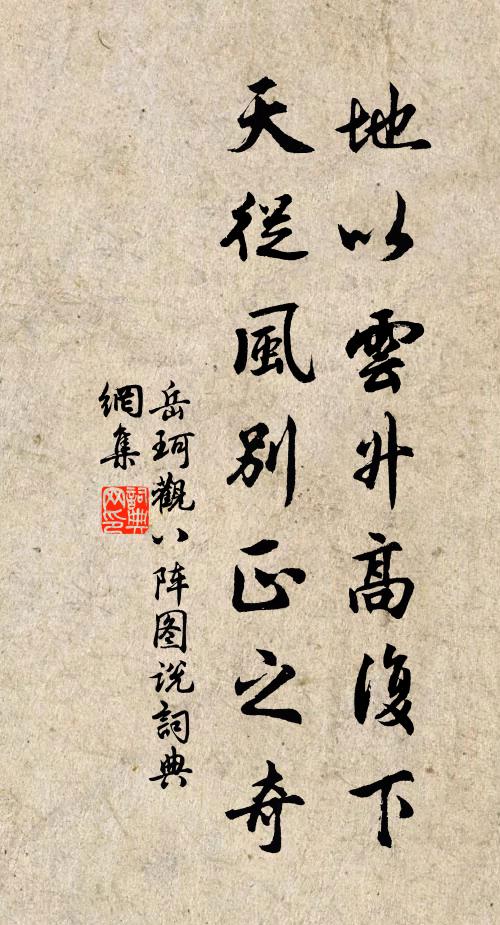 地以雲升高復下
天從風別正之奇
岳珂觀八阵图说詞典
網集
詞典
网印